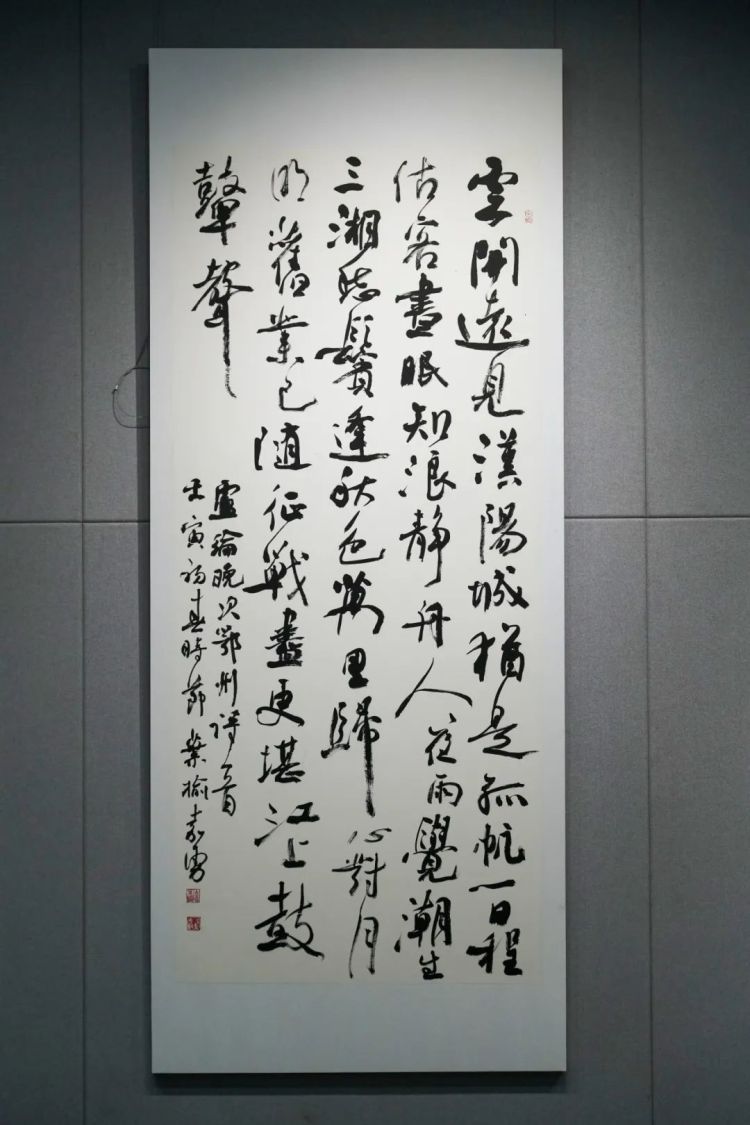 雲開遠見漢陽城猶是孤帆一日程
估客晝眠知浪静舟人夜雨覺潮生
三湘愁鬢逢秋色萬里歸心對月
明舊業已隨征戰盡更堪江上鼓
鼙聲
盧綸晚次鄂州詩一首
壬寅初春時節葉榆